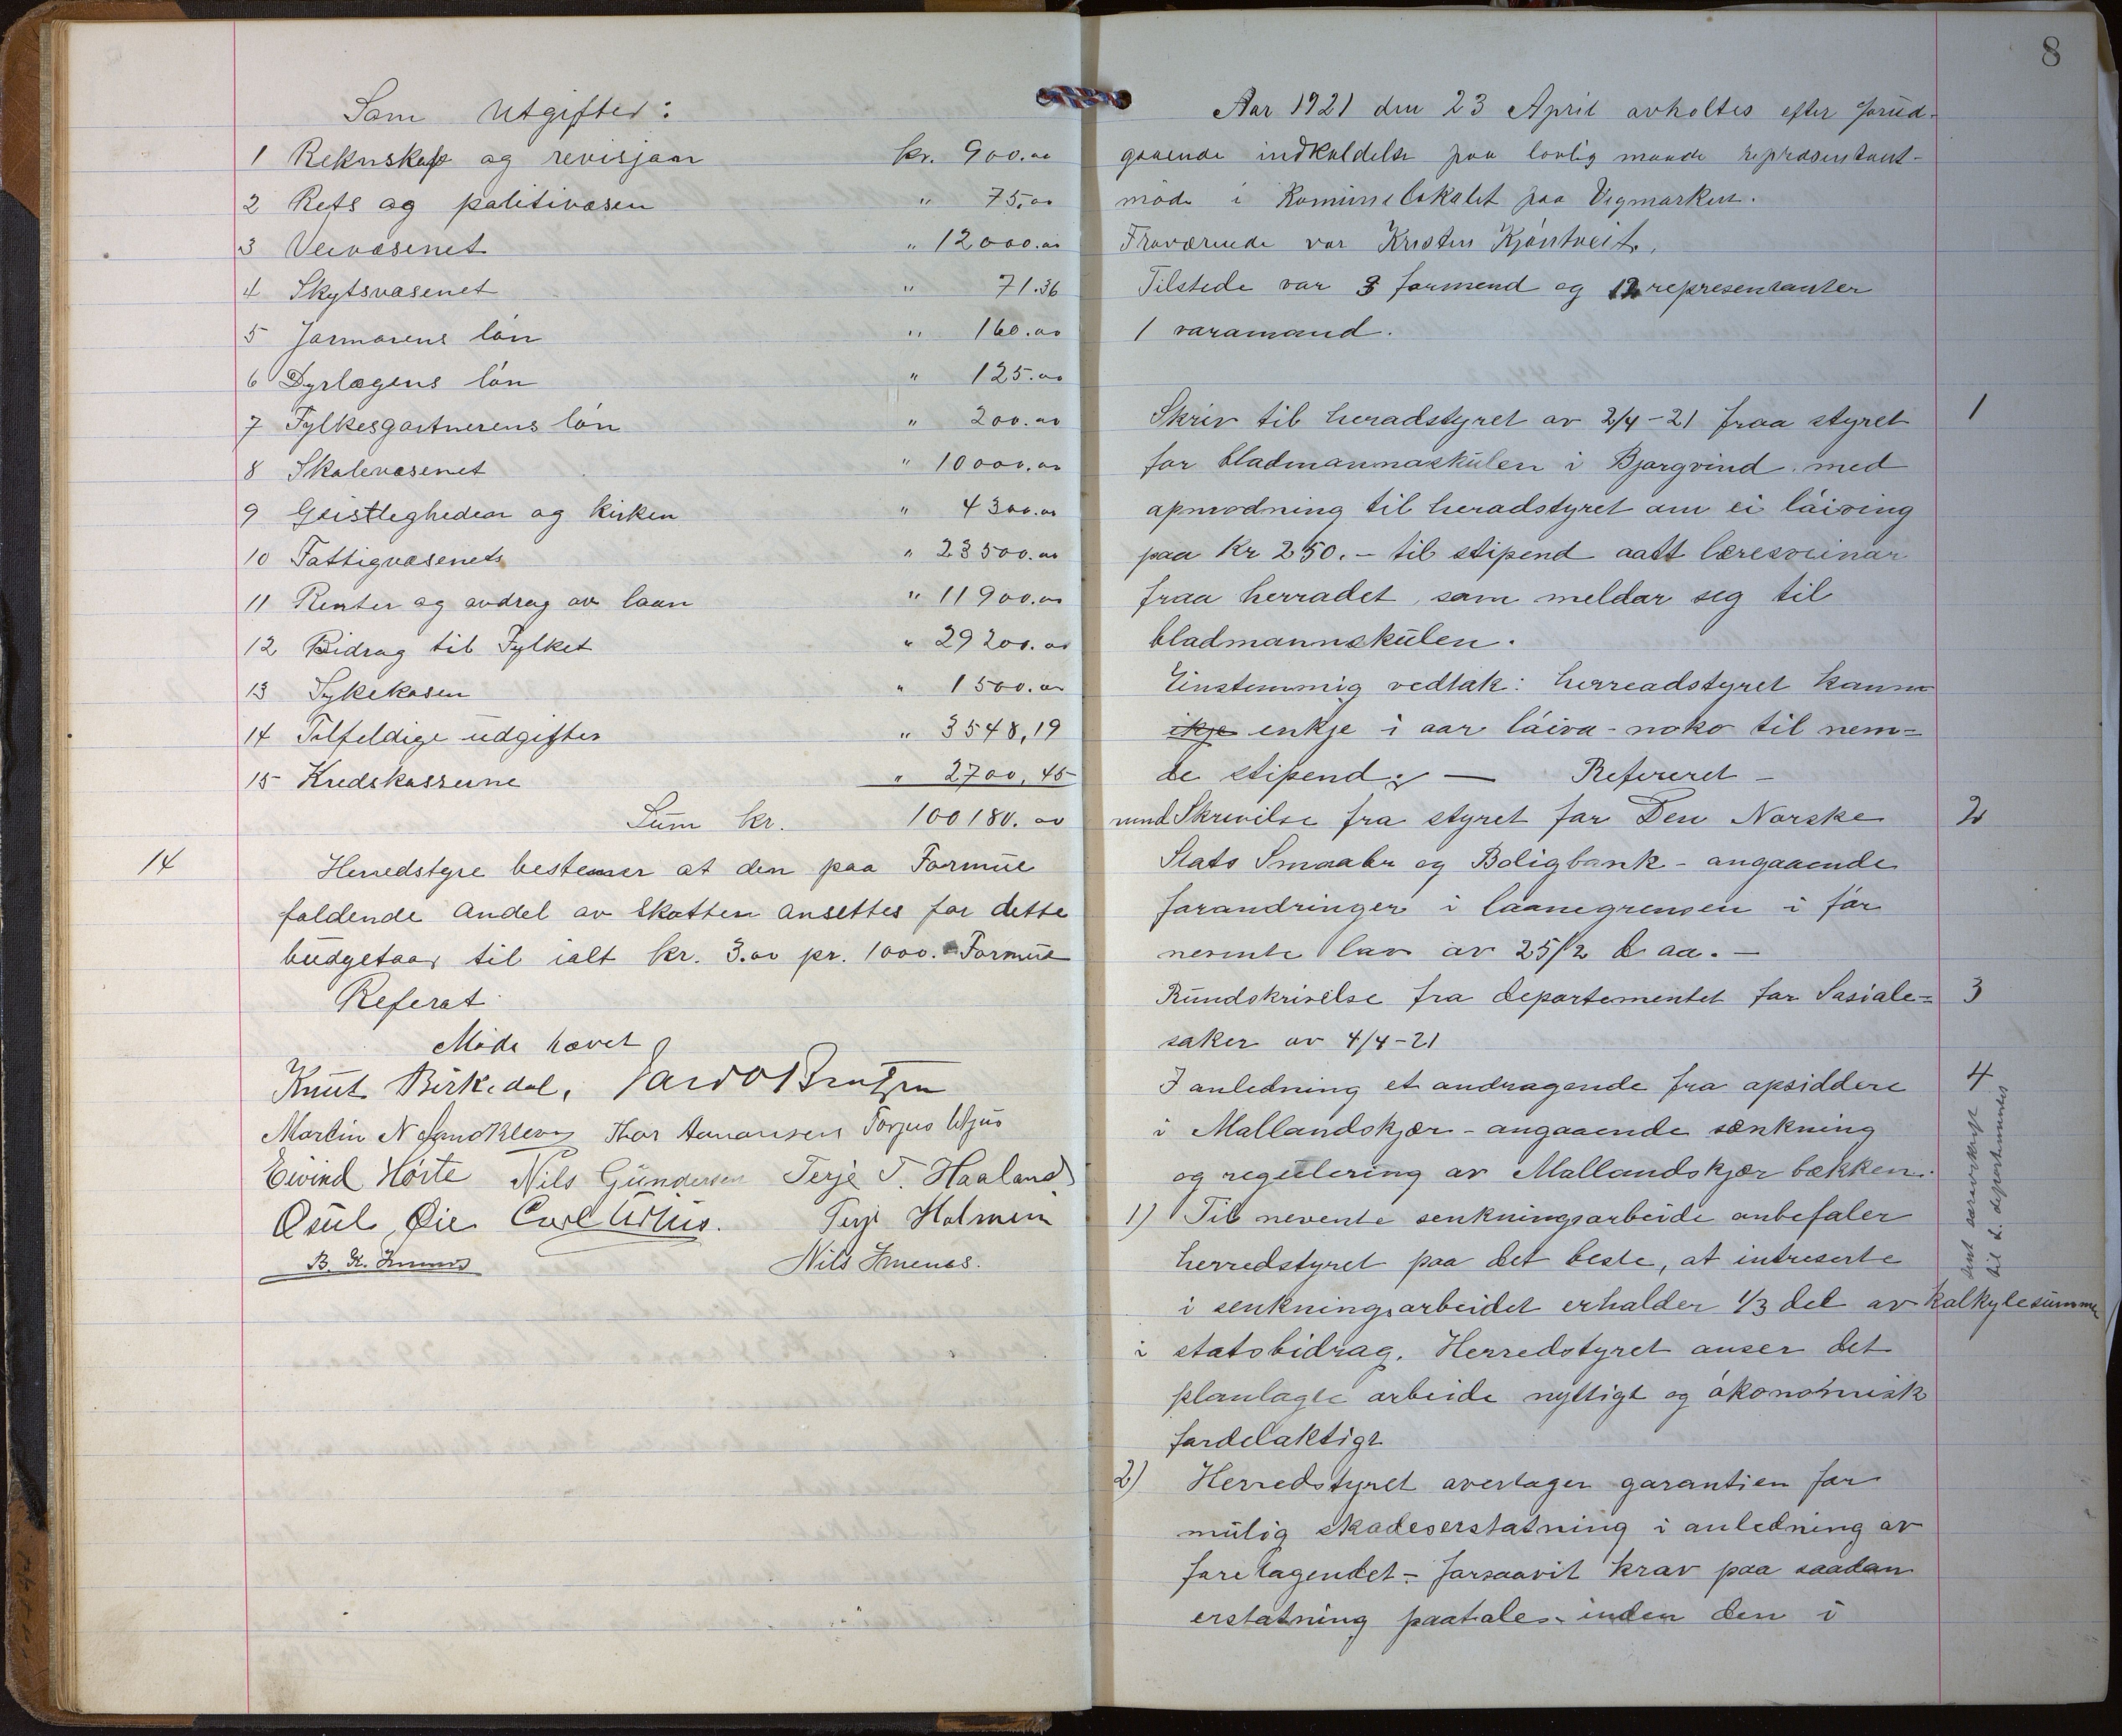 Som Utgifter:
1 Reknskap og revisjoon kr. 900.00
2 Rets og politivæsen " 75,00
3 Veivæsenet " 12000.00
4 Skytsvæsenet " 71.36
5 Jormorens lón " 160.00
6 Dyrlægens lón " 125.00
7 Fylkesgartnerens lón " 200.00
8 Skolevæsenet " 10000.00
9 Geistlegheden og kirken " 4300.00
10 Fattigvæsenets " 23500.00
11 Renter og avdrag av laan " 11900.00
12 Bidrag til Fylket " 29200.00
13 Sykekasen " 1500.00
14 Tilfeldige udgifter " 3548,19
15 Kredskasserne " 2700,45
Sum kr. 100180.00
14 Herredstyre bestemer at den paa Formue
faldende andel av skatten ansettes for dette
budgetaar til ialt kr. 3.00 pr. 1000. Formue
Referat
Móde hævet
Knut Birkedal,
Martin N Smokleev Thor Aanonsen Torjus Utjus
Eivind Hórte Nils Gundersen Terje T. Haaland
Osul Øie Terje Holmen
B. K. Nils Imenes.
8
Aar 1921 den 23 April avholtes efter forud-
gaaende indkaldelse paa lovlig maade repræsentant-
móde i Komunelokalet paa Vegmarken.
Fraværende var Kristen Kjóntveit.
Tilstede var 3 formend og 12 representanter
1 varamand.
Skriv til heradstyret av 2/4-21 fraa styret 1
for bladmannaskulen i Bjørgvind med
opmodning til heradstyret om ei láiving
paa Kr 250.- til stipend aatt læresveinar
fraa herradet, som meldar seg til
bladmannskulen.
Einstemmig vedtak: herreadstyret kann
ikje enkje i aar láiva - noko til nem=
de stipend. — Refereret -
rund Skrivilse fra styret for Den Norske 2
Stats Smaabr og Boligbank - angaaende
forandringer i laanegrensen i fór
nevente lov av 25/2 d aa. -
Rundskrivelse fra departementet for Sosiale= 3
saker av 4/4-21
I anledning et andragende fra opsiddere 4
i Mallandskjær - angaaende sænkning
og regulering av Mallandskjær bækken.
1) Til nevente senkningsarbeide anbefaler
herredstyret paa det beste, at intreserte
i senkningsarbeidet erholder 1/3 del av kalkylesummen
i statsbidrag. Herredstyret anser det
planlagte arbeide nyttigt og ókonomisk
fordelaktigt
2) Herredstyret overtager garantien for
mulig skadeserstatning i anledning av
foretagendet - forsaavit krav paa saadan
erstatning paatales inden den i
sent særutskrift
til L. departementet